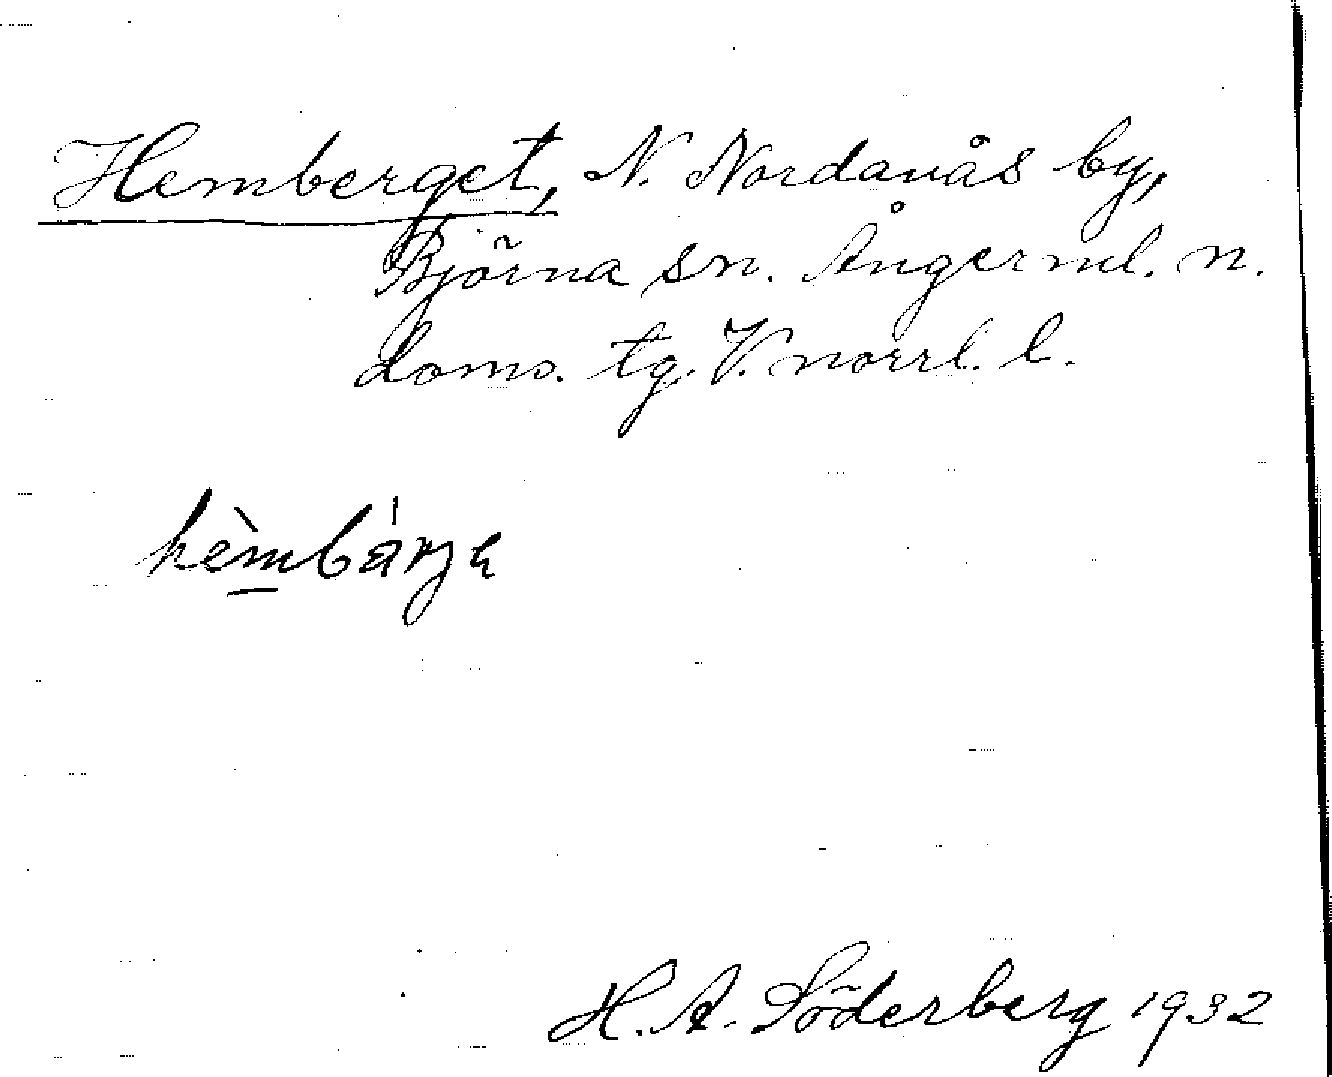 Hemberget, N. Nordanås by,
Björna sn. Ångerml. n.
doms. tg. V. norrl. l.
hèmbárjə
H. A. Söderberg 1932